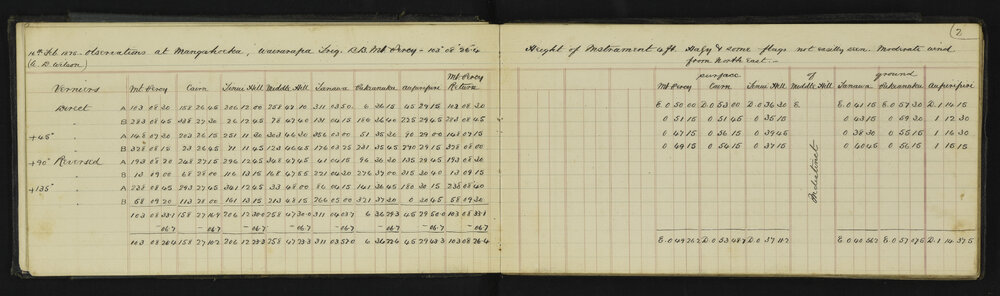 16th Feb 1875 - Observations at Mangahocka, Wairarapa Trig. B.B. Mt Percy - 103° 08' 26"4
(A. D. Wilson)
Verniers Mt Percy Cairn Tinui Hill Middle Hill Tanawa Pakanaku Mt Percy Return
Direct A 103 08 30 158 26 45 206 12 00 258 47 10 311 03 50 6 36 15 45 29 15 103 08 30
" B 283 08 45 338 27 30 26 12 45 78 47 40 131 04 15 186 36 40 225 29 45 283 08 45
+45° " A 148 07 30 203 26 15 251 11 30 303 46 30 356 03 00 51 35 30 90 29 00 148 07 15
" B 328 08 15 23 26 45 71 11 45 123 46 45 176 03 25 231 35 45 270 29 15 328 08 00
+90° Reversed A 193 08 20 248 27 15 296 12 45 348 47 45 41 04 15 96 36 30 135 29 45 193 08 30
" B 13 09 00 68 28 00 116 13 15 168 47 55 221 04 30 276 37 00 315 30 40 13 09 15
+135° " A 238 08 45 293 27 45 341 12 45 33 48 00 86 04 15 141 36 45 180 30 15 238 08 40
" B 58 09 20 113 28 00 161 13 15 213 48 15 266 05 00 321 37 30 0 30 45 58 09 30
103 08 33 1 158 27 16 9 206 12 30 0 258 47 30 0 311 04 03 7 6 36 29 3 45 29 50 0 103 08 33 1
-06.7 -06.7 -06.7 -06.7 -06.7 -06.7 -06.7 -06.7
103 08 26 4 158 27 10 2 206 12 23 3 258 47 23 3 311 03 57 0 6 36 22 6 45 29 43 3 103 08 26 4
(2
Height of Instrument 4 ft. Hazy & some flags not easily seen. Moderate wind
from North East.-
surface of ground
Mt Percy Cairn Tinui Hill Middle Hill Tanawa Pakanaku
E. 0 50 00 D. 0 53 00 D. 0 36 30 E. E. 0 41 15 E. 0 57 30 D. 1 14 15
0 51 15 0 51 45 0 35 15 0 43 15 0 59 30 1 12 30
0 47 15 0 36 15 0 39 45 0 38 30 0 55 15 1 16 30
0 49 15 0 54 15 0 37 15 0 40 45 0 56 15 1 15 15
Indistinct
E. 0 49 26 2 D. 0 53 48 7 D. 0 37 11 2 E. 0 40 56 2 E. 0 57 07 5 D. 1 14 37.5